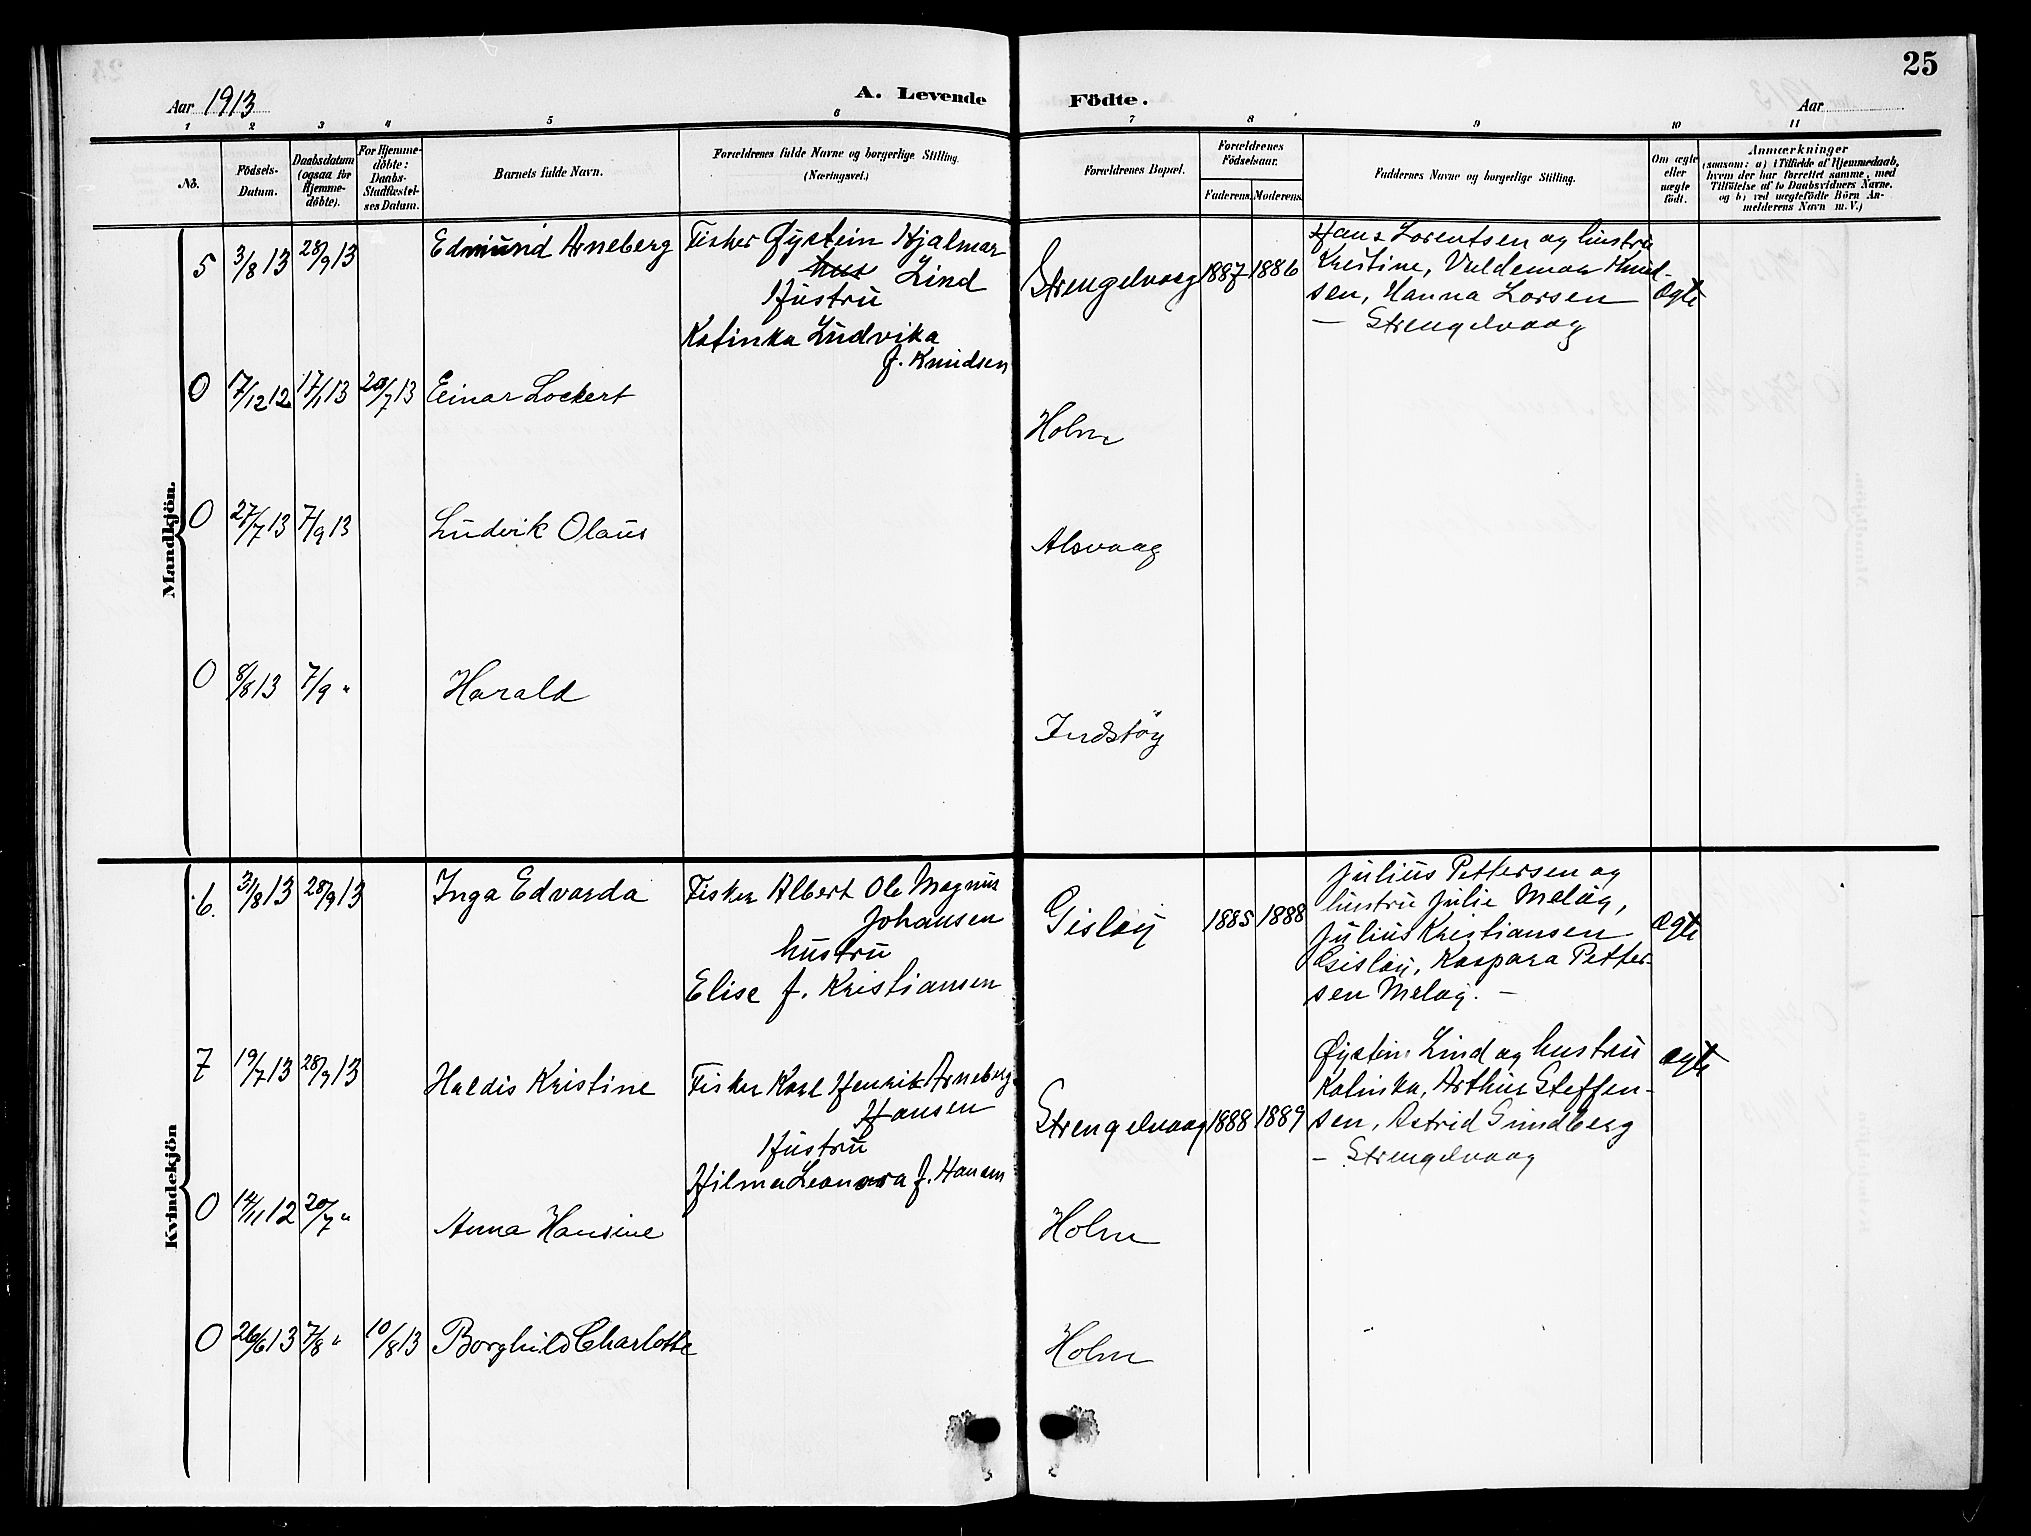 25
Aar 1913
A. Levende
Födte.
Aar
1 2 3 4 5 6 7 8 9 10 11
No.
Födsels-
Datum.
Daabsdatum
(ogsaa for
Hjemme-
döbte).
For Hjemme-
döbte:
Daabs-
Stadfæstel-
ses Datum.
Barnets fulde Navn.
Forældrenes fulde Navne og borgerlige Stilling.
(Næringsvei.)
Forældrenes Bopæl.
Forældrenes
Födselsaar.
Faderens.
Moderens.
Faddernes Navne og borgerlige Stilling.
Om ægte
eller
uægte
födt.
Anmærkninger
(saasom: a) i Tilfælde af Hjemmedaab,
hvem der har forrettet samme, med
Tilföielse af to Daabsvidners Navne.
og b) ved uægtefödte Börn An-
melderens Navn m. V.)
Mandkjön.
5 3/8 13 28/9 13 Edmund Arneberg
Fisker Øystein Hjalmar
hus Lind
Hustru
Katinka Ludvika
f. Knudsen
Strengelvaag 1887 1886
Hans Lorentsen og hustru
Kristine, Valdemar Knud-
sen, Hanna Larsen
— Strengelvaag
ægte
0 7/12 12 17/1 13 20/7 13 Einar Lockert
Holm
0 27/7 13 7/9 13 Ludvik Olaus
Alsvaag
0 8/8 13 7/9 " Harald
Indstöy
Kvindekjön
6. 31/8 13 28/9 13 Inga Edvarda
Fisker Albert Ole Magnus
Johansen
hustru
Elise f. Kristiansen
Gisløy 1885 1888
Julius Pettersen og
hustru Julie Meløy,
Julius Kristiansen
Gisløy, Kaspara Petter-
sen Meløy. —
ægte
7 19/7 13 28/9 13 Haldis Kristine
Fisker Karl Henrik Arneberg
Hansen
Hustru
Hilma Leonora f. Hansen
Strengelvaag 1888 1889
Øystein Lind og hustru
Katinka, Arthur Steffen-
sen, Astrid Grundberg
— Strengelvaag
ægte
0 14/11 12 20/7 " Anna Hansine
Holm
0 26/6 13 7/8 " 10/8 13 Borghild Charlotte
Holm